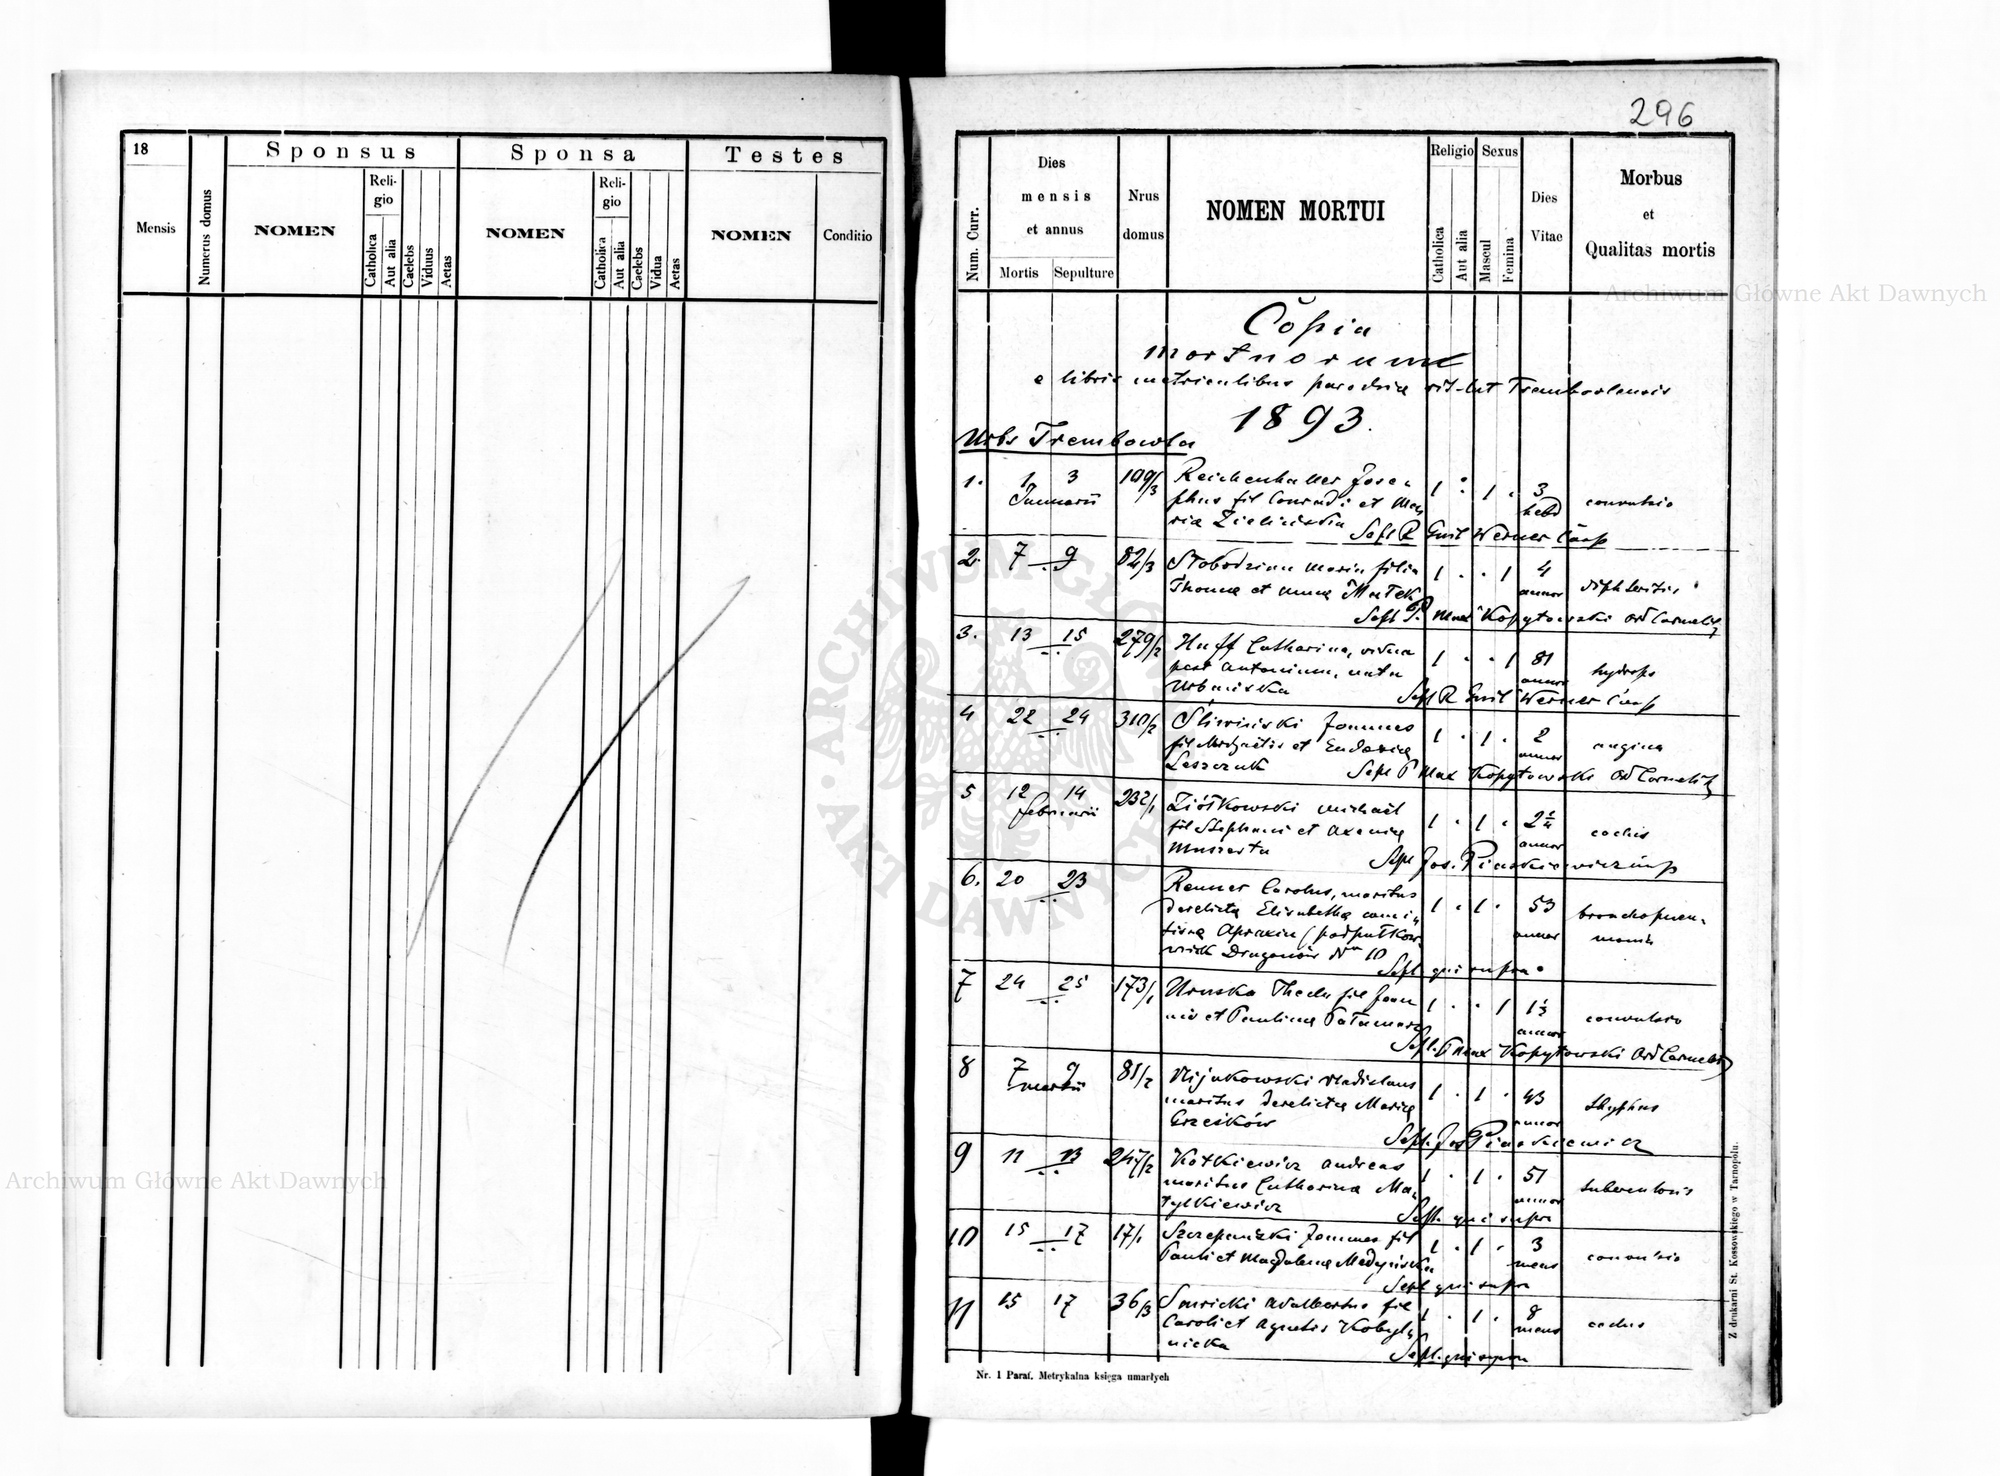 296
18
Sponsus
Sponsa
Testes
Mensis
Numerus domus
NOMEN
Religio
Catholica
Aut alia
Caelebs
Viduus
Aetas
NOMEN
Religio
Catholica
Aut alia
Caelebs
Vidua
Aetas
NOMEN
Conditio
Num. Curr.
Dies mensis et annus
Mortis
Sepulture
Nrus domus
NOMEN MORTUI
Religio
Catholica
Aut alia
Sexus
Mascul
Femina
Dies Vitae
Morbus et Qualitas mortis
Copia
mortuorum
e libris metricalibus parochiae rit. lat Trembovlensis
1893.
Urbs Trembowla
1. 1 3 Januarii 199/3 Reichenhaller Jose-
phus fil Conradi et Ma-
ria Zielińska 1 1 3 hebd convulsio
Sepl R Emil Werner Coop
2. 7 9 82/3 Słobodzian Maria filia
Thomae et Annae Małek 1 1 4 annor diphteritis
Sepl P. Max Kopytowski Ord Carmelit
3. 13 15 279/2 Huff Catharina, vidua
post Antonium, nata
Urbańska 1 1 81 annor hydrops
Sepl R Emil Werner Coop
4 22 24 310/2 Śliwiński Joannes
fil Michaëlis et Eudoxiae
Leszczuk 1 1 2 annor angina
Sepl P Max Kopytowski Ord Carmelit
5 12 14 Februarii 232/1 Ziółkowski Michaël
fil Stephani et Axeniae
Muszasta 1 1 2 1/4 annor
Sepl Jos. Piaskiewicz
6. 20 23 Renner Carolus, maritus
derelictae Elisabethae comi-
tissae Apraxin (podpułkow-
nik Dragonów Nro 10 1 1 53 annor bronchopneu-
monia
Sepl qui supra
7 24 25 173/1 Uruska Thecla fil Joan-
nis et Paulinae Pałamarz 1 1 1 1/2 annor convulsio
Sepl. P Max Kopytowski Ord Carmelit
8 7 9 Martii 81/2 Nijakowski Vladislaus
maritus derelictae Mariae
Grześków 1 1 43 annor thyphus
Sepl. Jos Piaskiewicz
9 11 13 247/2 Kotkiewicz Andreas
maritus Catharinae Ma-
tylkiewicz 1 1 51 annor tuberculosis
Sepl. qui supra
10 15 17 17/1 Szczepański Joannes fil
Pauli et Magdalenae Medyńska 1 1 3 mens convulsio
Sepl qui supra
11 15 17 36/3 Smricki Adalbertus fil
Caroli et Agnetis Kobyl-
nicka 1 1 8 mens
Sepl. qui supra
Nr. 1 Paraf. Metrykalna księga umarłych
Z drukarni St. Kossowskiego w Tarnopolu.
Archiwum Główne Akt Dawnych
Archiwum Główne Akt Dawnych
ARCHIWUM GŁÓWNE AKT DAWNYCH